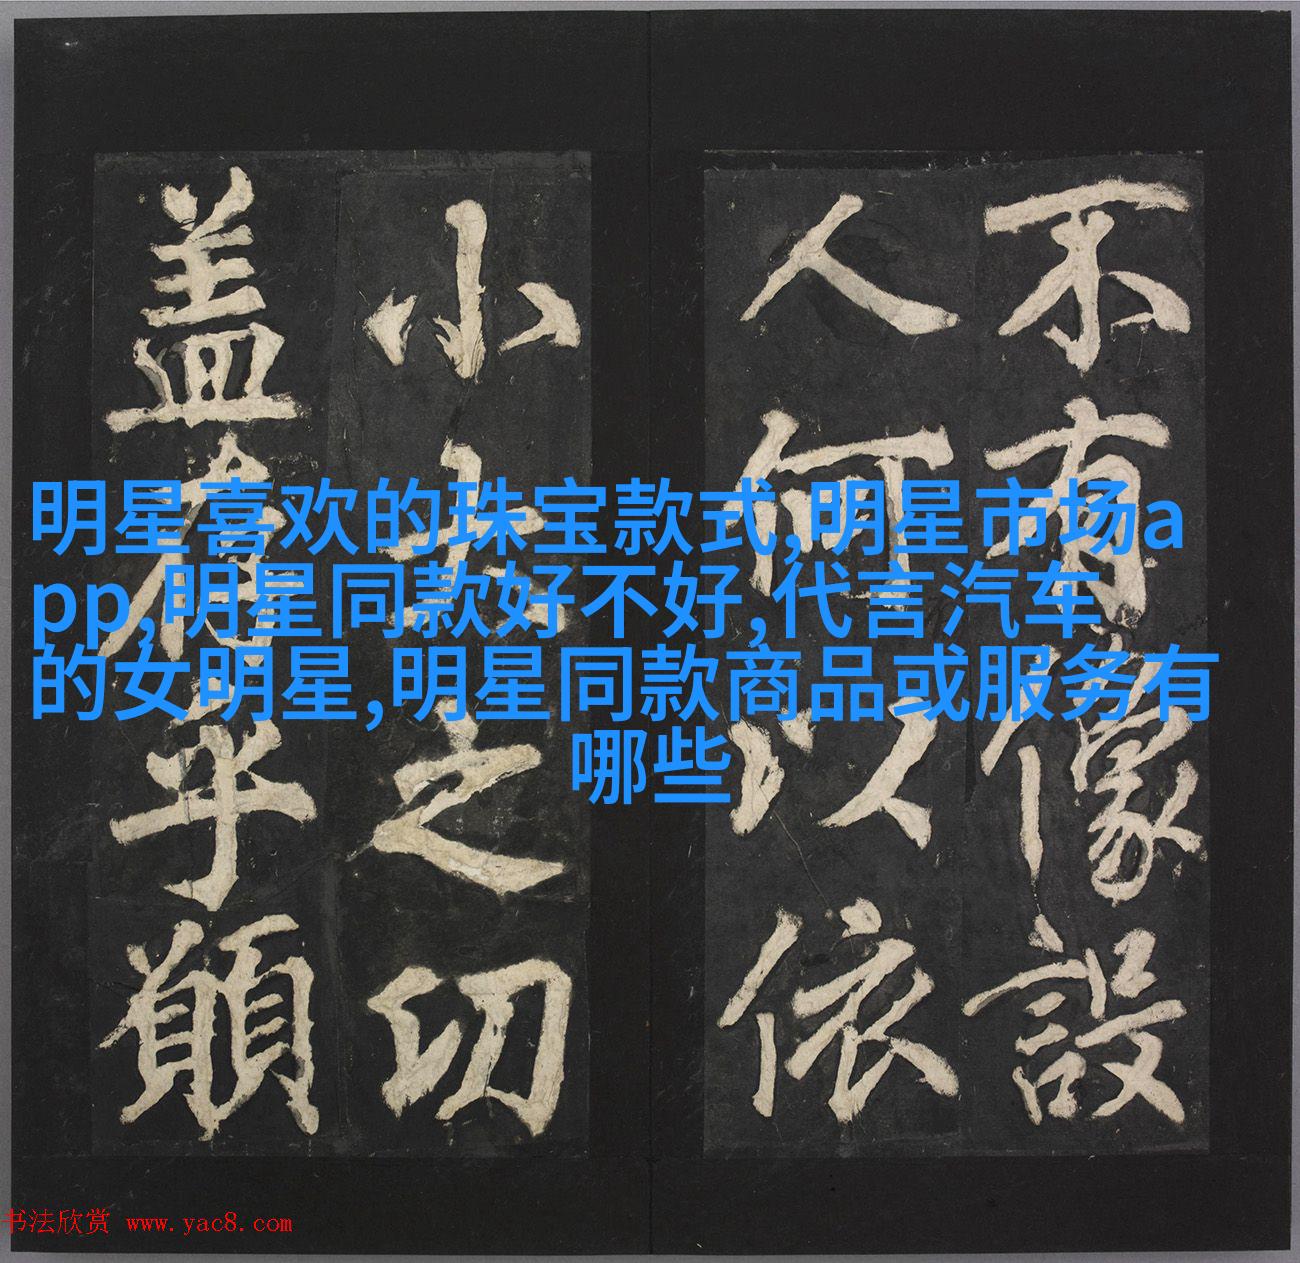 明星喜欢的珠宝款式,明星市场a
pp,明星同款好不好,代言汽车
的女明星,明星同款商品或服务有
哪些
不有像設
人何以依
小大之切
盖有孚顒
书法欣赏 www.yac8.com